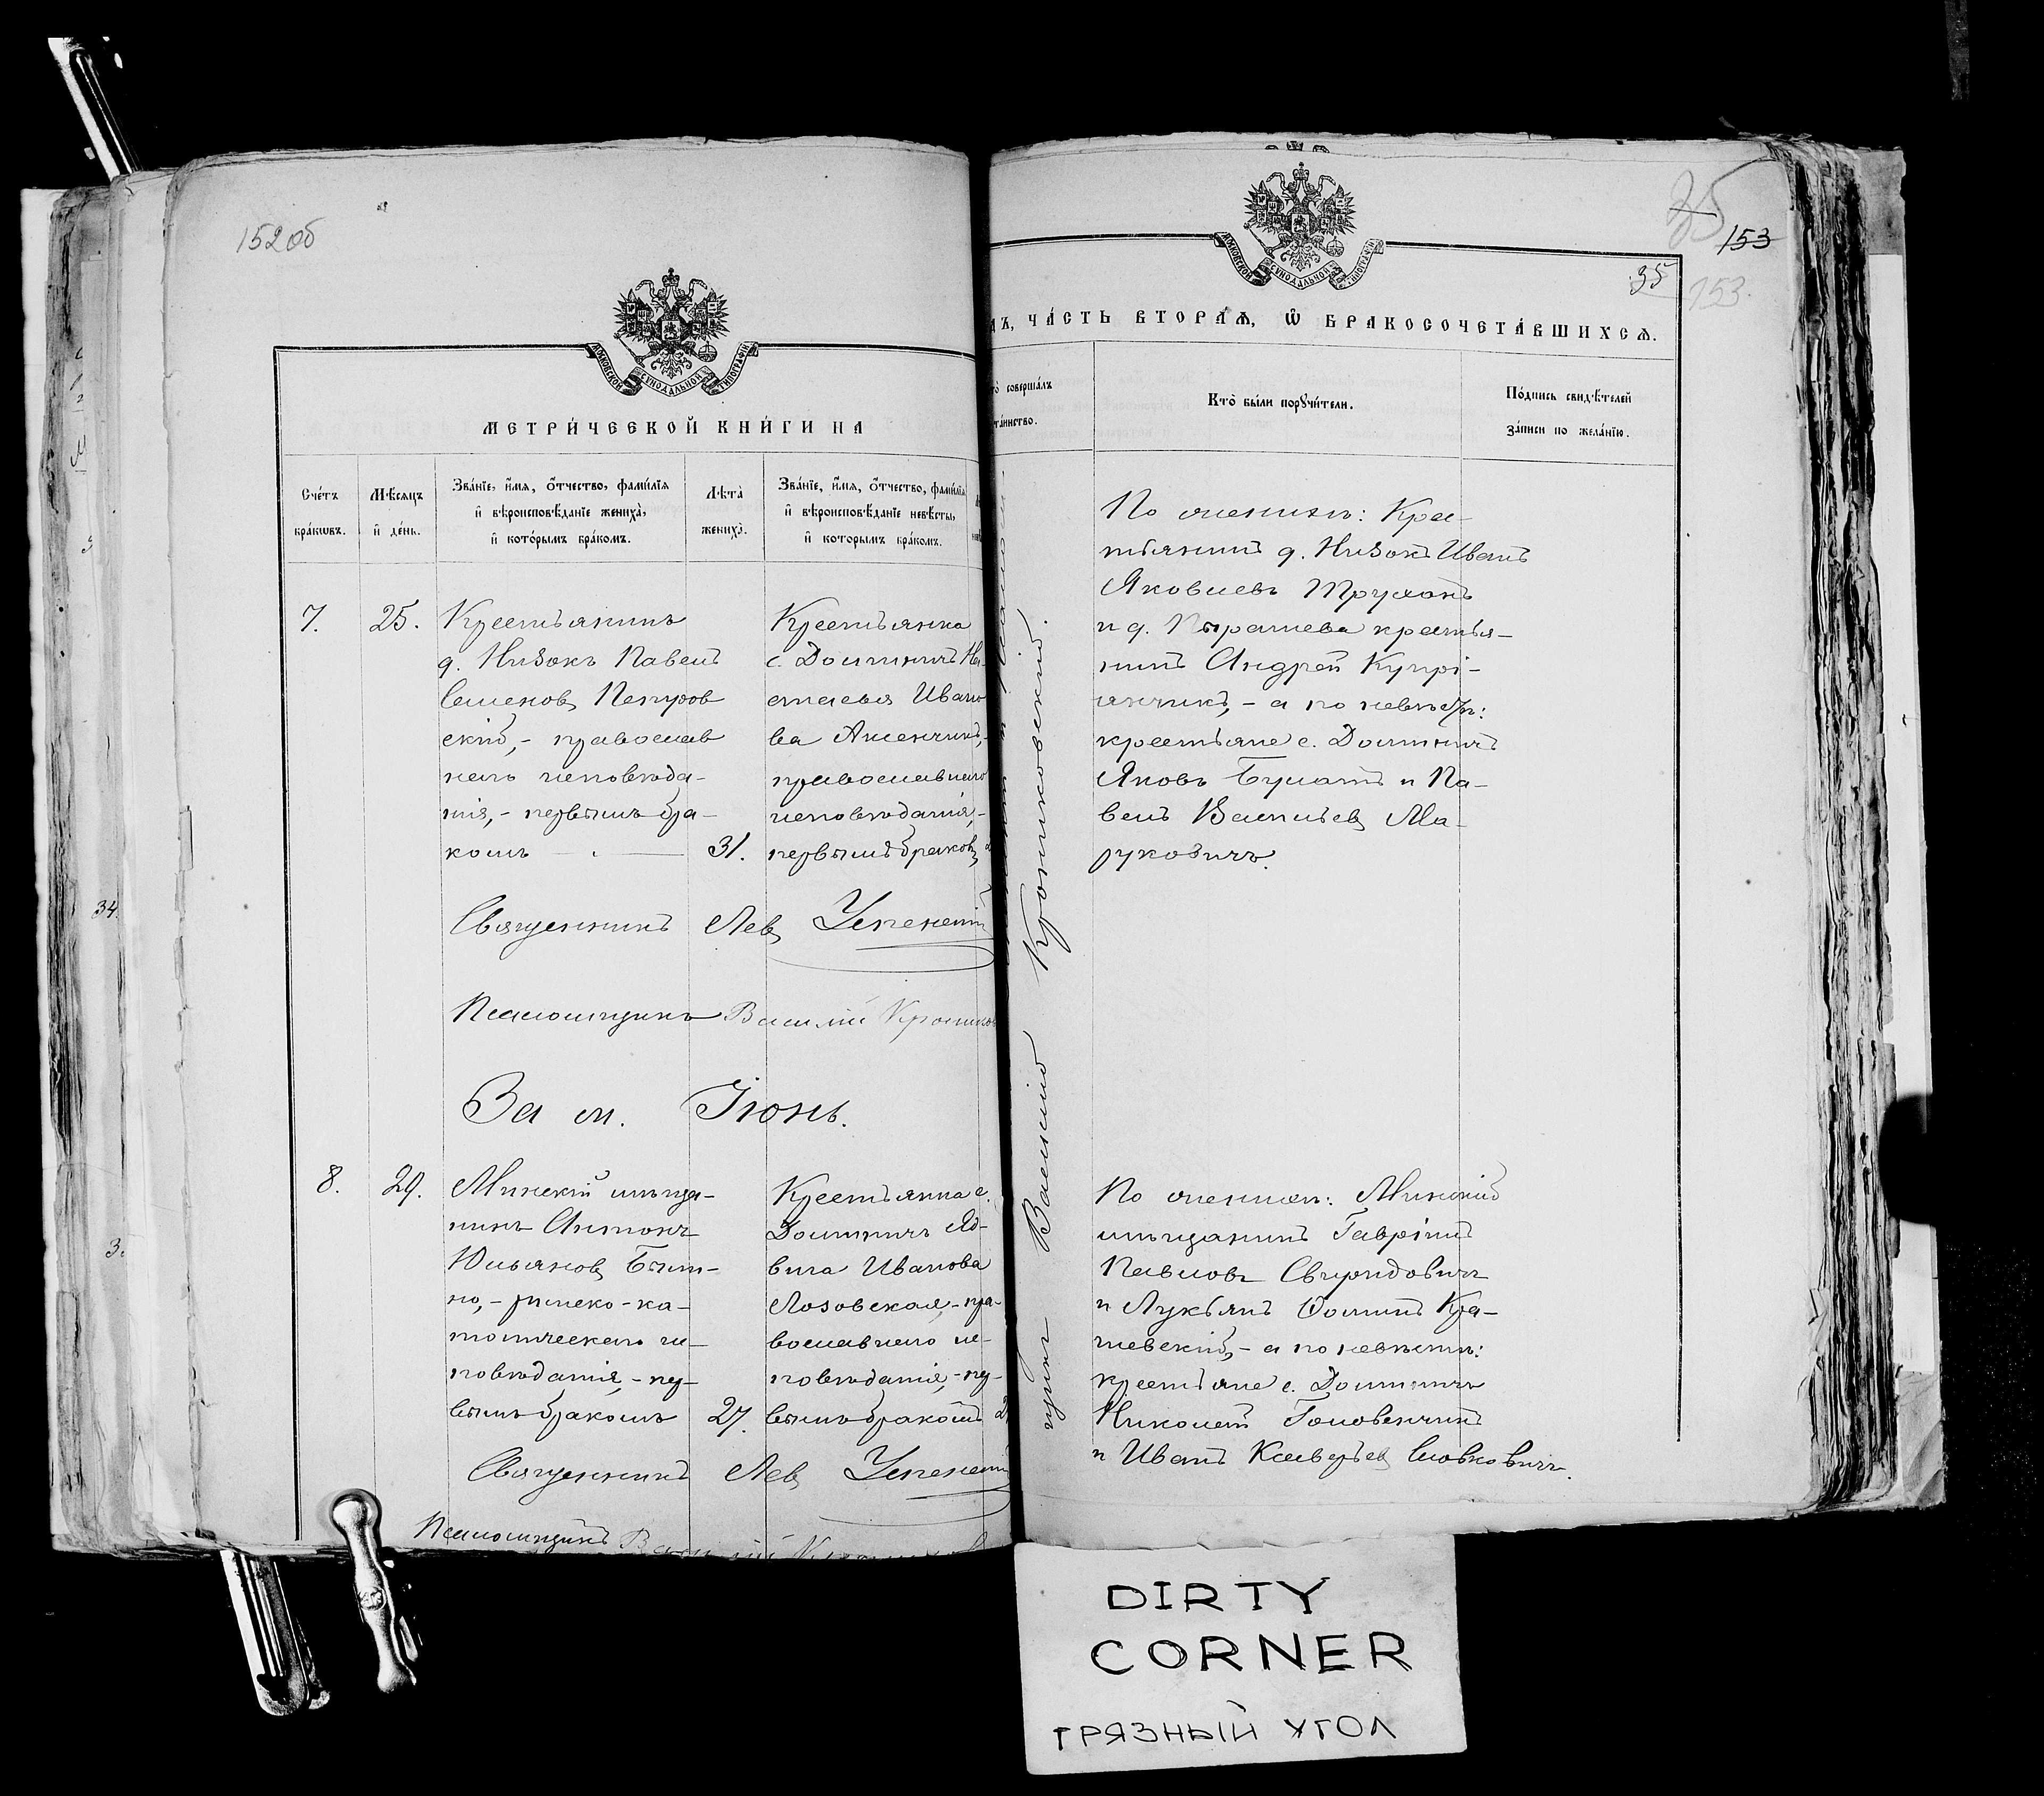 152об
МОСКОВСКОЙ СѴНОДАЛЬНОЙ ТИПОГРАФІИ
МЕТРИ́ЧЕСКОЙ КНИ́ГИ НА
Сче́тъ бра́кѡвъ.
Мѣ́сяцъ и҆ де́нь.
Зва́нїе, и҆́мя, о҆́тчество, фами́лїя и҆ вѣроисповѣ́данїе жениха̀, и҆ кото́рымъ бра́комъ.
Лѣ́та̀ жениха̀.
Зва́нїе, и҆́мя, о҆́тчество, фами́лїя и҆ вѣроисповѣ́данїе невѣ́сты, и҆ которымъ бра́комъ.
7.
25.
Крестьянинъ
д. Низокъ Павелъ
Семеновъ Петров
скій,- православ
наго исповѣда-
нія,- первымъ бра-
комъ
31.
Крестьянка
с. Долиничъ На-
стасья Ивано
ва Аксенчикъ,-
православнаго
исповѣданія,-
первымъ бракомъ
Священникъ Левъ Успенскій
Псаломщикъ Василій
За м. Іюнь.
8.
29.
Минскій мѣща-
нинъ Антонъ
Юльяновъ
но,- римско-ка-
толическаго ис-
повѣданія,- пер-
вымъ бракомъ
27.
Крестьянка с.
Долиничъ Яд-
вига Иванова
Лозовская,- пра-
вославнаго ис-
повѣданія,- пер-
вымъ бракомъ
Священникъ Левъ Успенскій
Псаломщикъ
35
153
35
153.
МОСКОВСКОЙ СѴНОДАЛЬНОЙ ТИПОГРАФІИ
ЧА́СТЬ ВТОРА́Ѧ, Ѽ БРАКОСОЧЕТА́ВШИХСѦ.
соверша́лъ та́инство.
Кто̀ бы́ли порꙋчи́тели.
По́дпись свидѣ́телей за́писи по жела́нїю.
По женихѣ: Кре-
стьянинъ д. Низокъ Иванъ
Яковлевъ Трухонъ
и д. крестья-
нинъ Андрей Купрі-
янчикъ,- а по невѣстѣ:
крестьяне с. Долиничъ
Яковъ Булатъ и Па-
велъ Васильевъ Ма-
руковичъ.
Василій
По женихѣ: Минскій
мѣщанинъ Гавріилъ
Павловъ Свиридовичъ
и Лукьянъ Ѳоминъ Кра-
чевскій,- а по невѣстѣ:
крестьяне с. Долиничъ
Николай Головенчикъ
и Иванъ Ксаверьевъ
DIRTY
CORNER
ГРЯЗНЫЙ УГОЛ